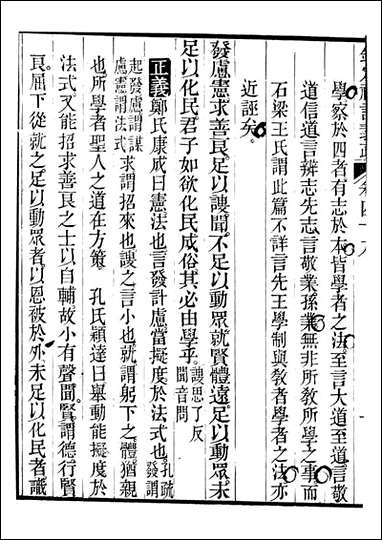 學家於四者有志於本皆學者之法至言大道至道言敬
道信道言辨志先志言敬業孫業無非所敎所學之事而
石梁王氏謂此篇不詳言先王學制與敎者學者之法亦
近誣矣
發慮憲求善良足以謏聞不足以動衆就賢體遠足以動衆未
足以化民君子如欲化民成俗其必由學乎謏思了反聞音問
正義鄭氏康成曰憲法也言發計慮當擬度於法式也孔疏發謂
起發慮謂謀慮憲謂法式求謂招來也謏之言小也就謂躬下之體猶親
也所學者聖人之道在方策 孔氏穎達曰舉動能擬度於
法式又能招求善良之士以自輔故小有聲聞賢謂德行賢
良屈下從就之足以動衆者以恩被於外未足以化民者識